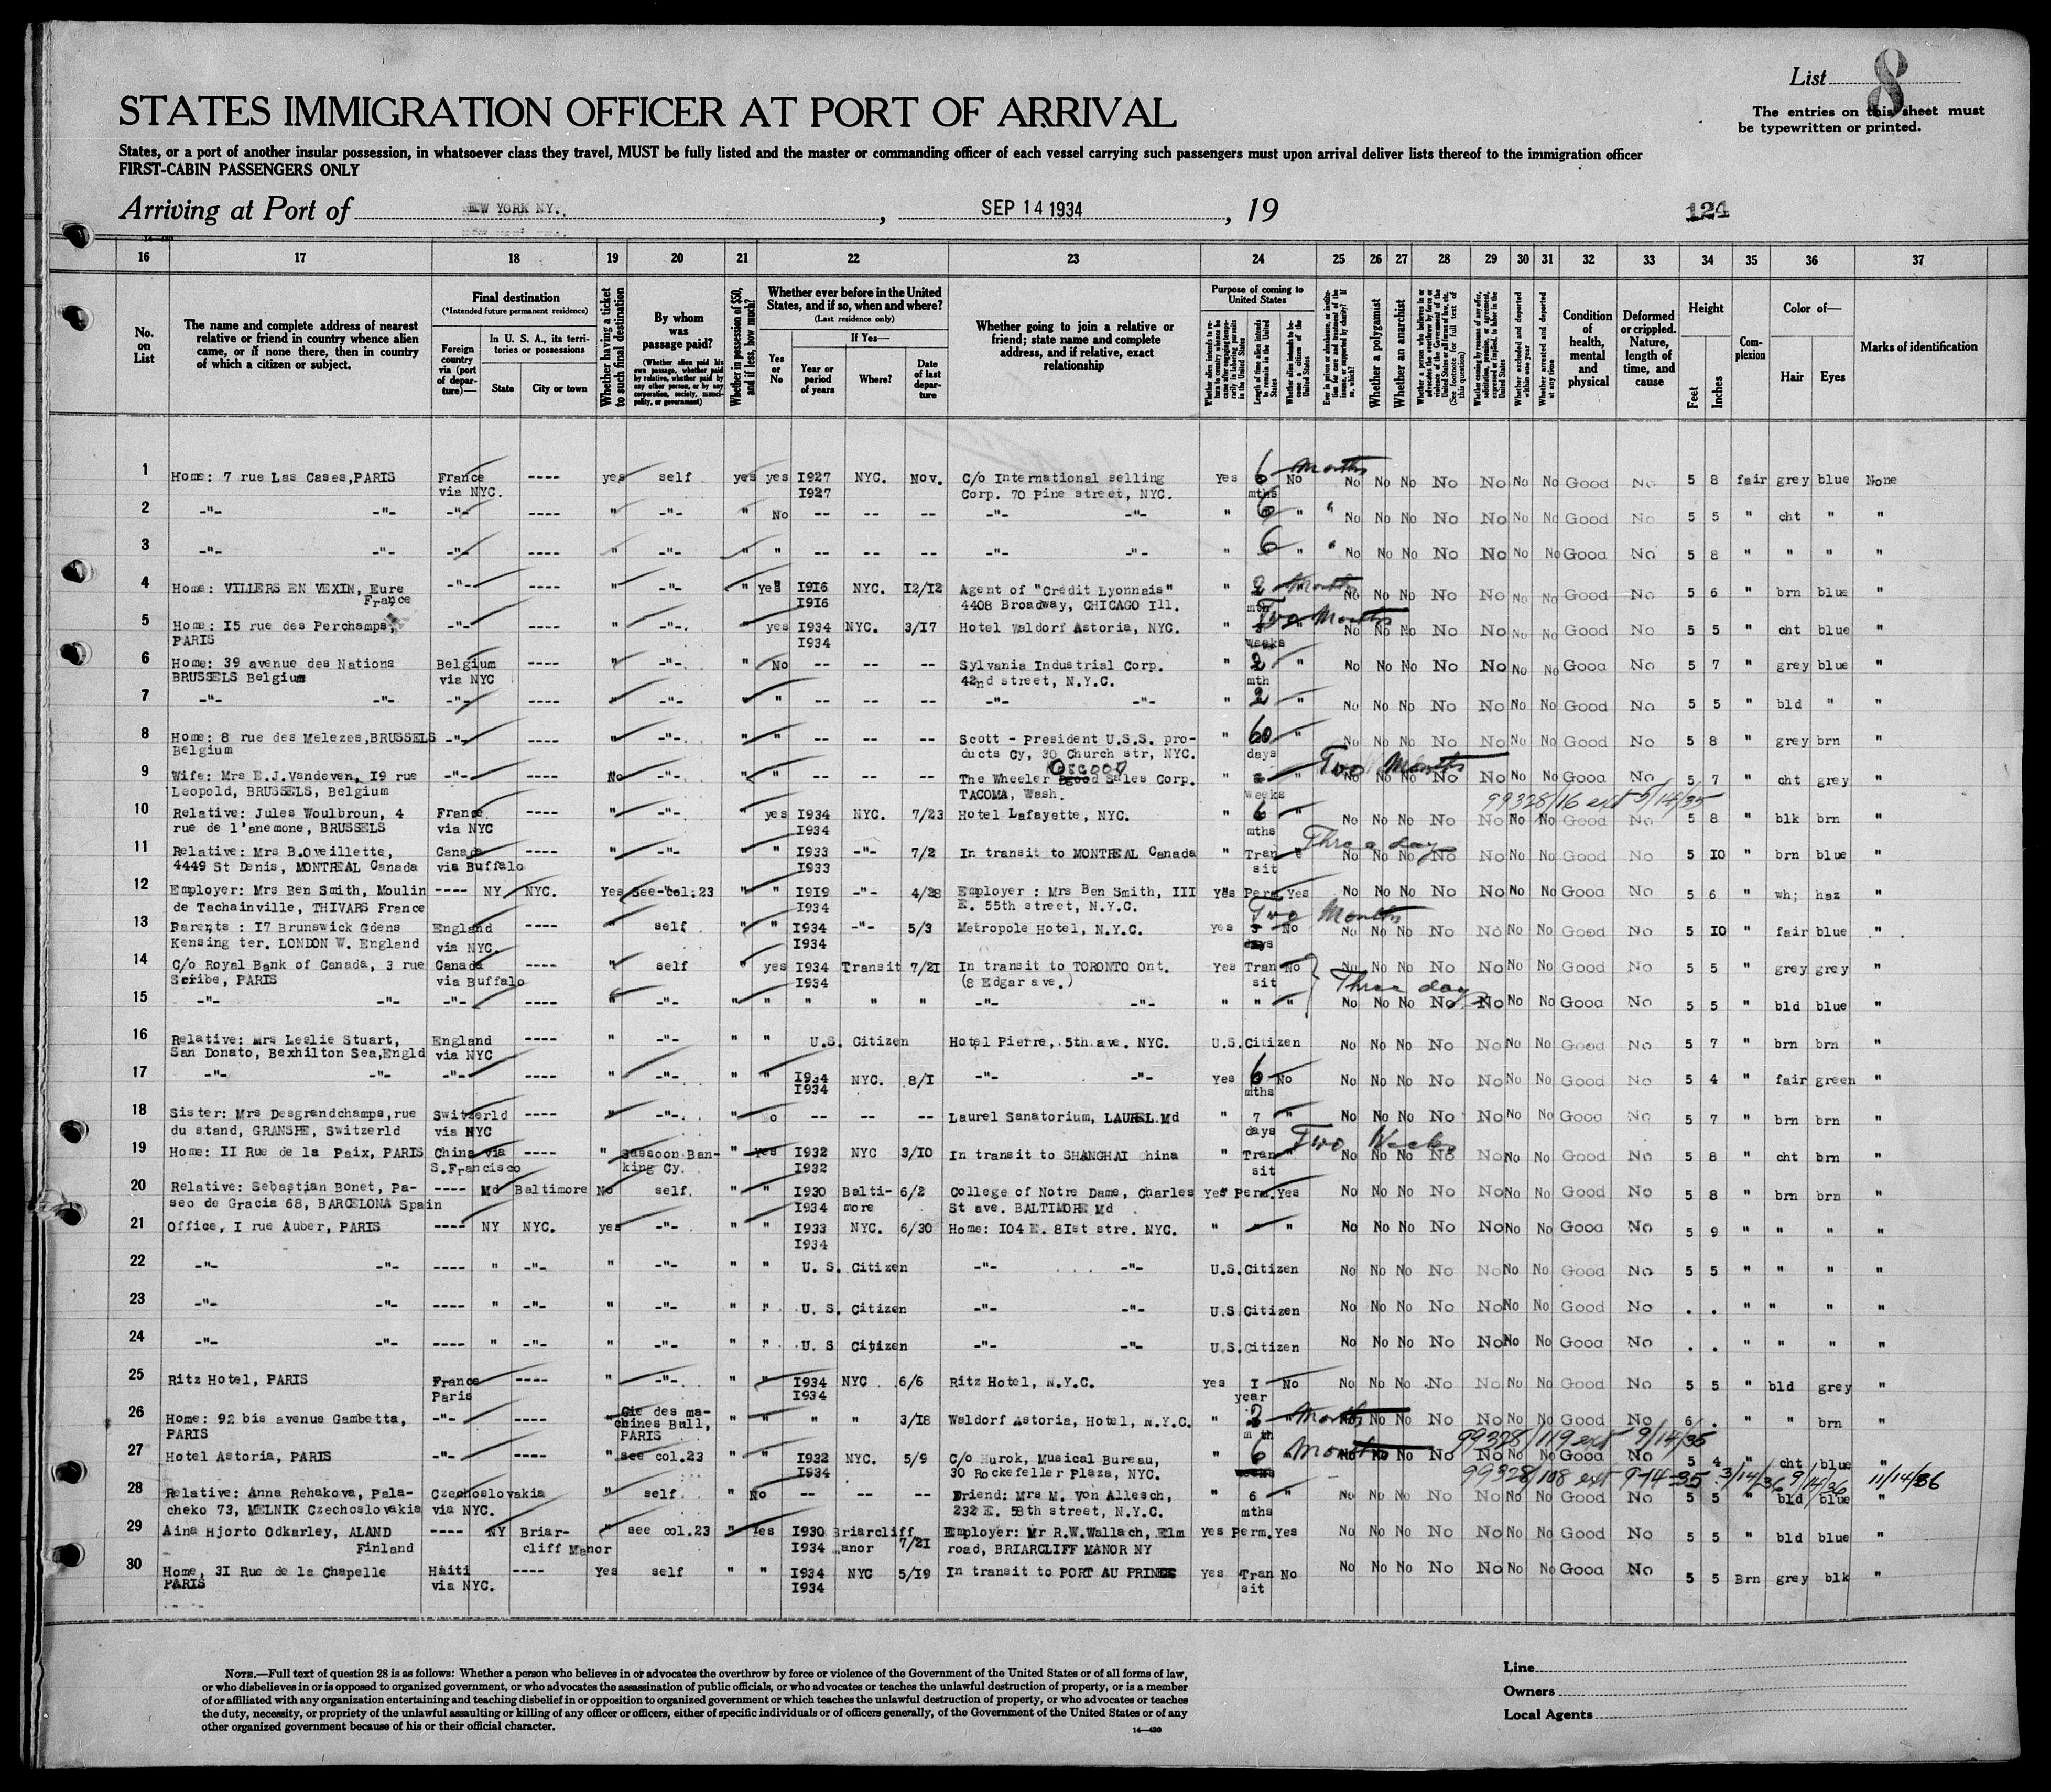 List 8
STATES IMMIGRATION OFFICER AT PORT OF ARRIVAL
The entries on this sheet must
be typewritten or printed.
States, or a port of another insular possession, in whatsoever class they travel, MUST be fully listed and the master or commanding officer of each vessel carrying such passengers must upon arrival deliver lists thereof to the immigration officer
FIRST-CABIN PASSENGERS ONLY
Arriving at Port of NEW YORK NY., SEP 14 1934, 19
124
16 17 18 19 20 21 22 23 24 25 26 27 28 29 30 31 32 33 34 35 36 37
No. on List
The name and complete address of nearest relative or friend in country whence alien came, or if none there, then in country of which a citizen or subject.
Final destination
(*Intended future permanent residence)
Foreign country via (port of departure)—
In U. S. A., its territories or possessions
State
City or town
Whether having a ticket to such final destination
By whom was passage paid?
(Whether alien paid his own passage, whether paid by relative, whether paid by any other person, or by any corporation, society, municipality, or government)
Whether in possession of $50, and if less, how much?
Whether ever before in the United States, and if so, when and where?
(Last residence only)
Yes or No
If Yes—
Year or period of years
Where?
Date of last departure
Whether going to join a relative or friend; state name and complete address, and if relative, exact relationship
Purpose of coming to United States
Whether alien intends to return to country whence he came after engaging temporarily in laboring pursuits in the United States
Length of time alien intends to remain in the United States
Whether alien intends to become a citizen of the United States
Ever in prison or almshouse, or institution for care and treatment of the insane, or supported by charity? If so, which?
Whether a polygamist
Whether an anarchist
Whether a person who believes in or advocates the overthrow by force or violence of the Government of the United States or all forms of law, etc. (See footnote for full text of this question)
Whether coming by reason of any offer, solicitation, promise, or agreement, expressed or implied, to labor in the United States
Whether excluded and deported within one year
Whether arrested and deported at any time
Condition of health, mental and physical
Deformed or crippled. Nature, length of time, and cause
Height
Feet
Inches
Complexion
Color of—
Hair
Eyes
Marks of identification
1 Home: 7 rue Las Cases, PARIS France via NYC. ---- yes self yes yes 1927 1927 NYC. Nov. C/o International selling Corp. 70 Pine street, NYC. Yes 6 months mths No No No No No No No No Good No 5 8 fair grey blue None
2 -"- -"- -"- ---- " -"- " No -- -- -- -"- -"- " 6 " " No No No No No No No Good No 5 5 " cht " "
3 -"- -"- -"- ---- " -"- " " -- -- -- -"- -"- " 6 " " No No No No No No No Good No 5 8 " " " "
4 Home: VILLERS EN VEXIN, Eure France -"- ---- " -"- " yes 1916 1916 NYC. 12/12 Agent of "Credit Lyonnais" 4408 Broadway, CHICAGO Ill. " 2 months mth No No No No No No No Good No 5 6 " brn blue "
5 Home: 15 rue des Perchamps, PARIS -"- ---- " -"- " yes 1934 1934 NYC. 3/17 Hotel Waldorf Astoria, NYC. " Two Months weeks " No No No No No No No Good No 5 5 " cht blue "
6 Home: 39 avenue des Nations BRUSSELS Belgium Belgium via NYC ---- " -"- " No -- -- -- Sylvania Industrial Corp. 42nd street, N.Y.C. " 2 mth " No No No No No No No Good No 5 7 " grey blue "
7 -"- -"- -"- ---- " -"- " " -- -- -- -"- -"- " 2 " No No No No No No No Good No 5 5 " bld " "
8 Home: 8 rue des Melezes, BRUSSELS Belgium -"- ---- " -"- " " -- -- -- Scott - president U.S.S. products Cy, 30 Church str, NYC. " 60 days " No No No No No No No Good No 5 8 " grey brn "
9 Wife: Mrs E.J.Vandeven, 19 rue Leopold, BRUSSELS, Belgium -"- ---- No -"- " " -- -- -- The Wheeler OSGOOD Sales Corp. TACOMA, Wash. " weeks " Two Months No No No No No No No Good No 5 7 " cht grey "
99328/16 ext 5/14/35
10 Relative: Jules Woulbroun, 4 rue de l'anemone, BRUSSELS France via NYC ---- " -"- " yes 1934 1934 NYC. 7/23 Hotel Lafayette, NYC. " 6 mths " No No No No No No No Good No 5 8 " blk brn "
11 Relative: Mrs B.Oveillette, 4449 St Denis, MONTREAL Canada Canada via Buffalo ---- " -"- " " 1933 1933 -"- 7/2 In transit to MONTREAL Canada " Transit " Three days No No No No No No No Good No 5 10 " brn blue "
12 Employer: Mrs Ben Smith, Moulin de Tachainville, THIVARS France ---- NY NYC. Yes See col.23 " " 1919 1934 -"- 4/28 Employer : Mrs Ben Smith, III E. 55th street, N.Y.C. Yes Perm. Yes No No No No No No No Good No 5 6 " wh; haz "
13 Parents : 17 Brunswick Gdens Kensing ter. LONDON W. England England via NYC. ---- " self " " 1934 1934 -"- 5/3 Metropole Hotel, N.Y.C. yes Two Months days No No No No No No No No Good No 5 10 " fair blue "
14 C/o Royal Bank of Canada, 3 rue Scribe, PARIS Canada via Buffalo ---- " self " yes 1934 1934 Transit 7/21 In transit to TORONTO Ont. (8 Edgar ave.) Yes Transit No No No No No No No No Good No 5 5 " grey grey "
Three days
15 -"- -"- -"- ---- " -"- " " " " " -"- -"- " " " No No No No No No No Good No 5 5 " bld blue "
16 Relative: Mrs Leslie Stuart, San Donato, Bexhilton Sea, Engld England via NYC ---- " -"- " " U.S. Citizen Hotel Pierre, 5th ave. NYC. U.S.Citizen No No No No No No No Good No 5 7 " brn brn "
17 -"- -"- -"- ---- " -"- " " 1934 1934 NYC. 8/1 -"- -"- Yes 6 mths No No No No No No No No Good No 5 4 " fair green "
18 Sister: Mrs Desgrandchamps, rue du stand, GRANSHE, Switzerld Switzerld via NYC ---- " -"- " o -- -- -- Laurel Sanatorium, LAUREL Md " 7 days " No No No No No No No Good No 5 7 " brn brn "
19 Home: II Rue de la Paix, PARIS China via S.Francisco ---- " Sassoon Banking Cy. " yes 1932 1932 NYC 3/10 In transit to SHANGHAI China " Transit " Two Weeks No No No No No No No Good No 5 8 " cht brn "
20 Relative: Sebastian Bonet, Paseo de Gracia 68, BARCELONA Spain ---- Md Baltimore No self. " " 1930 1934 Baltimore 6/2 College of Notre Dame, Charles St ave. BALTIMORE Md Yes Perm. Yes No No No No No No No Good No 5 8 " brn brn "
21 Office, I rue Auber, PARIS ---- NY NYC. yes -"- " " 1933 1934 NYC. 6/30 Home: 104 E. 81st stre. NYC. " " " No No No No No No No Good No 5 9 " " " "
22 -"- -"- ---- " -"- " -"- " " U. S. Citizen -"- -"- U.S.Citizen No No No No No No No Good No 5 5 " " " "
23 -"- -"- ---- " -"- " -"- " " U. S. Citizen -"- -"- U.S Citizen No No No No No No No Good No . . " " " "
24 -"- -"- ---- " -"- " -"- " " U. S Citizen -"- -"- U.S.Citizen No No No No No No No Good No . . " " " "
25 Ritz Hotel, PARIS France Paris ---- " -"- " " 1934 1934 NYC 6/6 Ritz Hotel, N.Y.C. Yes I year No No No No No No No No Good No 5 5 " bld grey "
26 Home: 92 bis avenue Gambetta, PARIS -"- ---- " Cie des machines Bull, PARIS " " " " 3/18 Waldorf Astoria, Hotel, N.Y.C. " 2 months mth " No No No No No No No Good No 6 . " " brn "
99328/119 ext 9/14/35
27 Hotel Astoria, PARIS -"- ---- " see col.23 " " 1932 1934 NYC. 5/9 C/o Hurok, Musical Bureau, 30 Rockefeller Plaza, NYC. " 6 Months weeks No No No No No No No Good No 5 4 " cht blue "
99328/108 ext 9-14-35 3/14/36 9/14/36 11/14/36
28 Relative: Anna Rehakova, Palacheko 73, MELNIK Czechoslovakia Czechoslovakia via NYC. " self. " No -- -- -- Friend: Mrs M. Von Allesch, 232 E. 58th street, N.Y.C. " 6 mths " No No No No No No No Good No 5 5 " bld blue "
29 Aina Hjorto Odkarley, ALAND Finland ---- NY Briarcliff Manor " see col.23 " Yes 1930 1934 Briarcliff anor 7/21 Employer: Mr R.W.Wallach, Elm road, BRIARCLIFF MANOR NY Yes Perm. Yes No No No No No No No Good No 5 5 " bld blue "
30 Home, 31 Rue de la Chapelle PARIS Haiti via NYC. ---- Yes self " " 1934 1934 NYC 5/19 In transit to PORT AU PRINCE Yes Transit No No No No No No No No Good No 5 5 Brn grey blk "
NOTE.—Full text of question 28 is as follows: Whether a person who believes in or advocates the overthrow by force or violence of the Government of the United States or of all forms of law,
or who disbelieves in or is opposed to organized government, or who advocates the assassination of public officials, or who advocates or teaches the unlawful destruction of property, or is a member
of or affiliated with any organization entertaining and teaching disbelief in or opposition to organized government or which teaches the unlawful destruction of property, or who advocates or teaches
the duty, necessity, or propriety of the unlawful assaulting or killing of any officer or officers, either of specific individuals or of officers generally, of the Government of the United States or of any
other organized government because of his or their official character.
14—430
Line
Owners
Local Agents